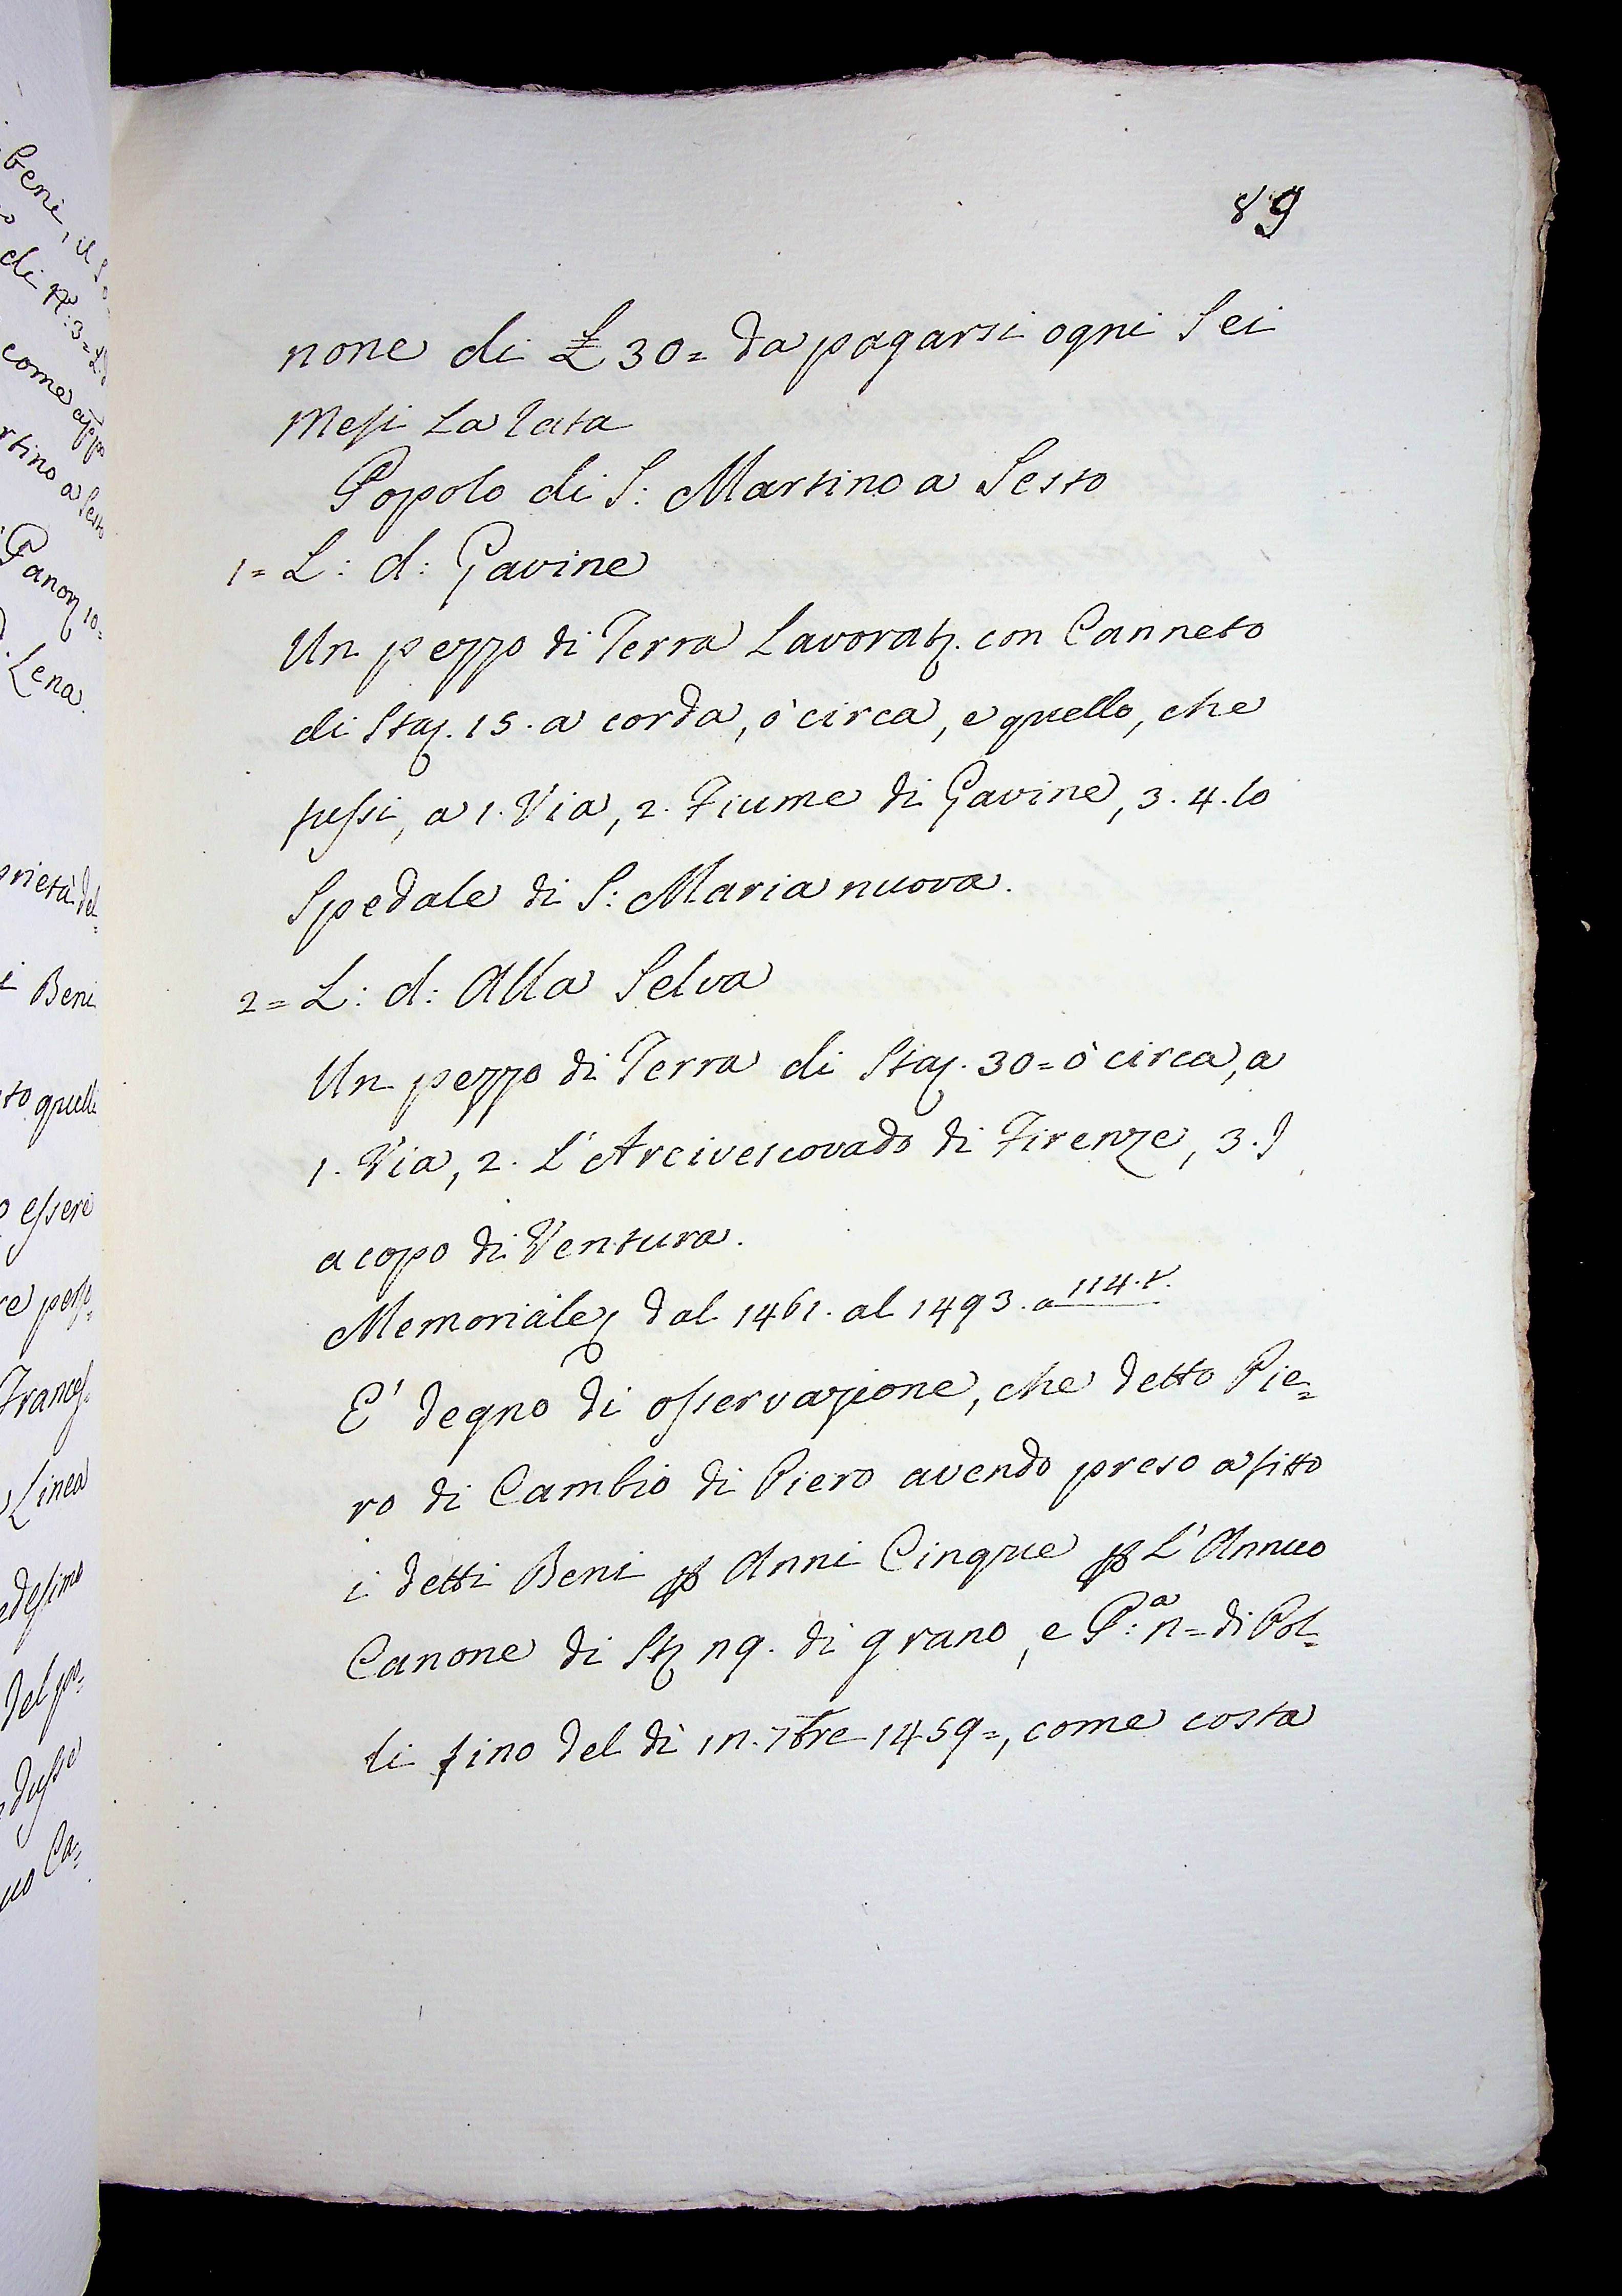 bene, il
di N.º 3 =
come
rtino a Sesto
Panor 10=
Lena.
prietà del=
i Beni
to quelli
essere
re perp=
Frances.
Linea
edesimo
del po=
dusse
uo Ca=
89
none di £ 30 = da pagarsi ogni Sei
Mesi La rata
Popolo di S: Martino a Sesto
1 = L: d: Gavine
Un pezzo di Terra Lavorat. con Canneto
di Staj. 15. a corda, ò circa, e quello, che
fussi, a 1. Via, 2. Fiume di Gavine, 3. 4. lo
Spedale di S: Maria nuova.
2 = L: d: Alla Selva
Un pezzo di Terra di Staj. 30 = ò circa, a
1. Via, 2. L'Arcivescovado di Firenze, 3. J
acopo di Ventura.
Memoriale dal 1461. al 1493. a 114. v.
E' degno di osservazione, che detto Pie=
ro di Cambio di Piero avendo preso a fitto
i detti Beni p Anni Cinque p L'Annuo
Canone di St n9. di grano, e P:ª n = di Pol=
li fino del dì 1n. 7bre 1459=, come costa